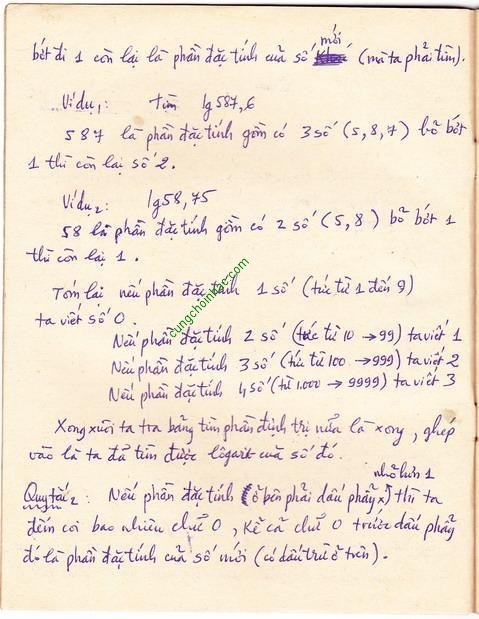 mới
bớt đi 1 còn lại là phần đặc tính của số khác (mà ta phải tìm).
Ví dụ1: tìm lg587,6
587 là phần đặc tính gồm có 3 số (5,8,7) bỏ bớt
1 thì còn lại số 2.
Ví dụ2: lg58,75
58 là phần đặc tính gồm có 2 số (5,8) bỏ bớt 1
thì còn lại 1.
Tóm lại nếu phần đặc tính 1 số (tức từ 1 đến 9)
ta viết số 0.
Nếu phần đặc tính 2 số (tức từ 10 → 99) ta viết 1
Nếu phần đặc tính 3 số (tức từ 100 → 999) ta viết 2
Nếu phần đặc tính 4 số (từ 1.000 → 9999) ta viết 3
Xong xuôi ta tra bảng tìm phần định trị nữa là xong, ghép
vào là ta đã tìm được lôgart của số đó.
nhỏ hơn 1
Quy tắc2: Nếu phần đặc tính (ở bên phải dấu phẩy) thì ta
đếm coi bao nhiêu chữ 0, kể cả chữ 0 trước dấu phẩy
đó là phần đặc tính của số mới (có dấu trừ ở trên).
cungchoinhac.com